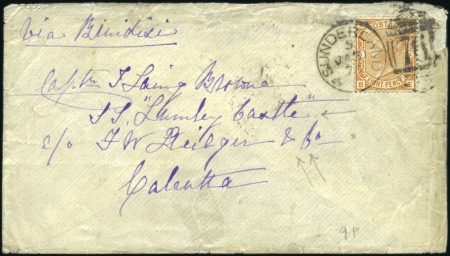 Via Brindisi
SUNDERLAND
POSTAGE
EIGHT PENCE
Captn J Laing Browne
SS "Lumley Castle"
c/o F W Heilgers & Co
Calcutta